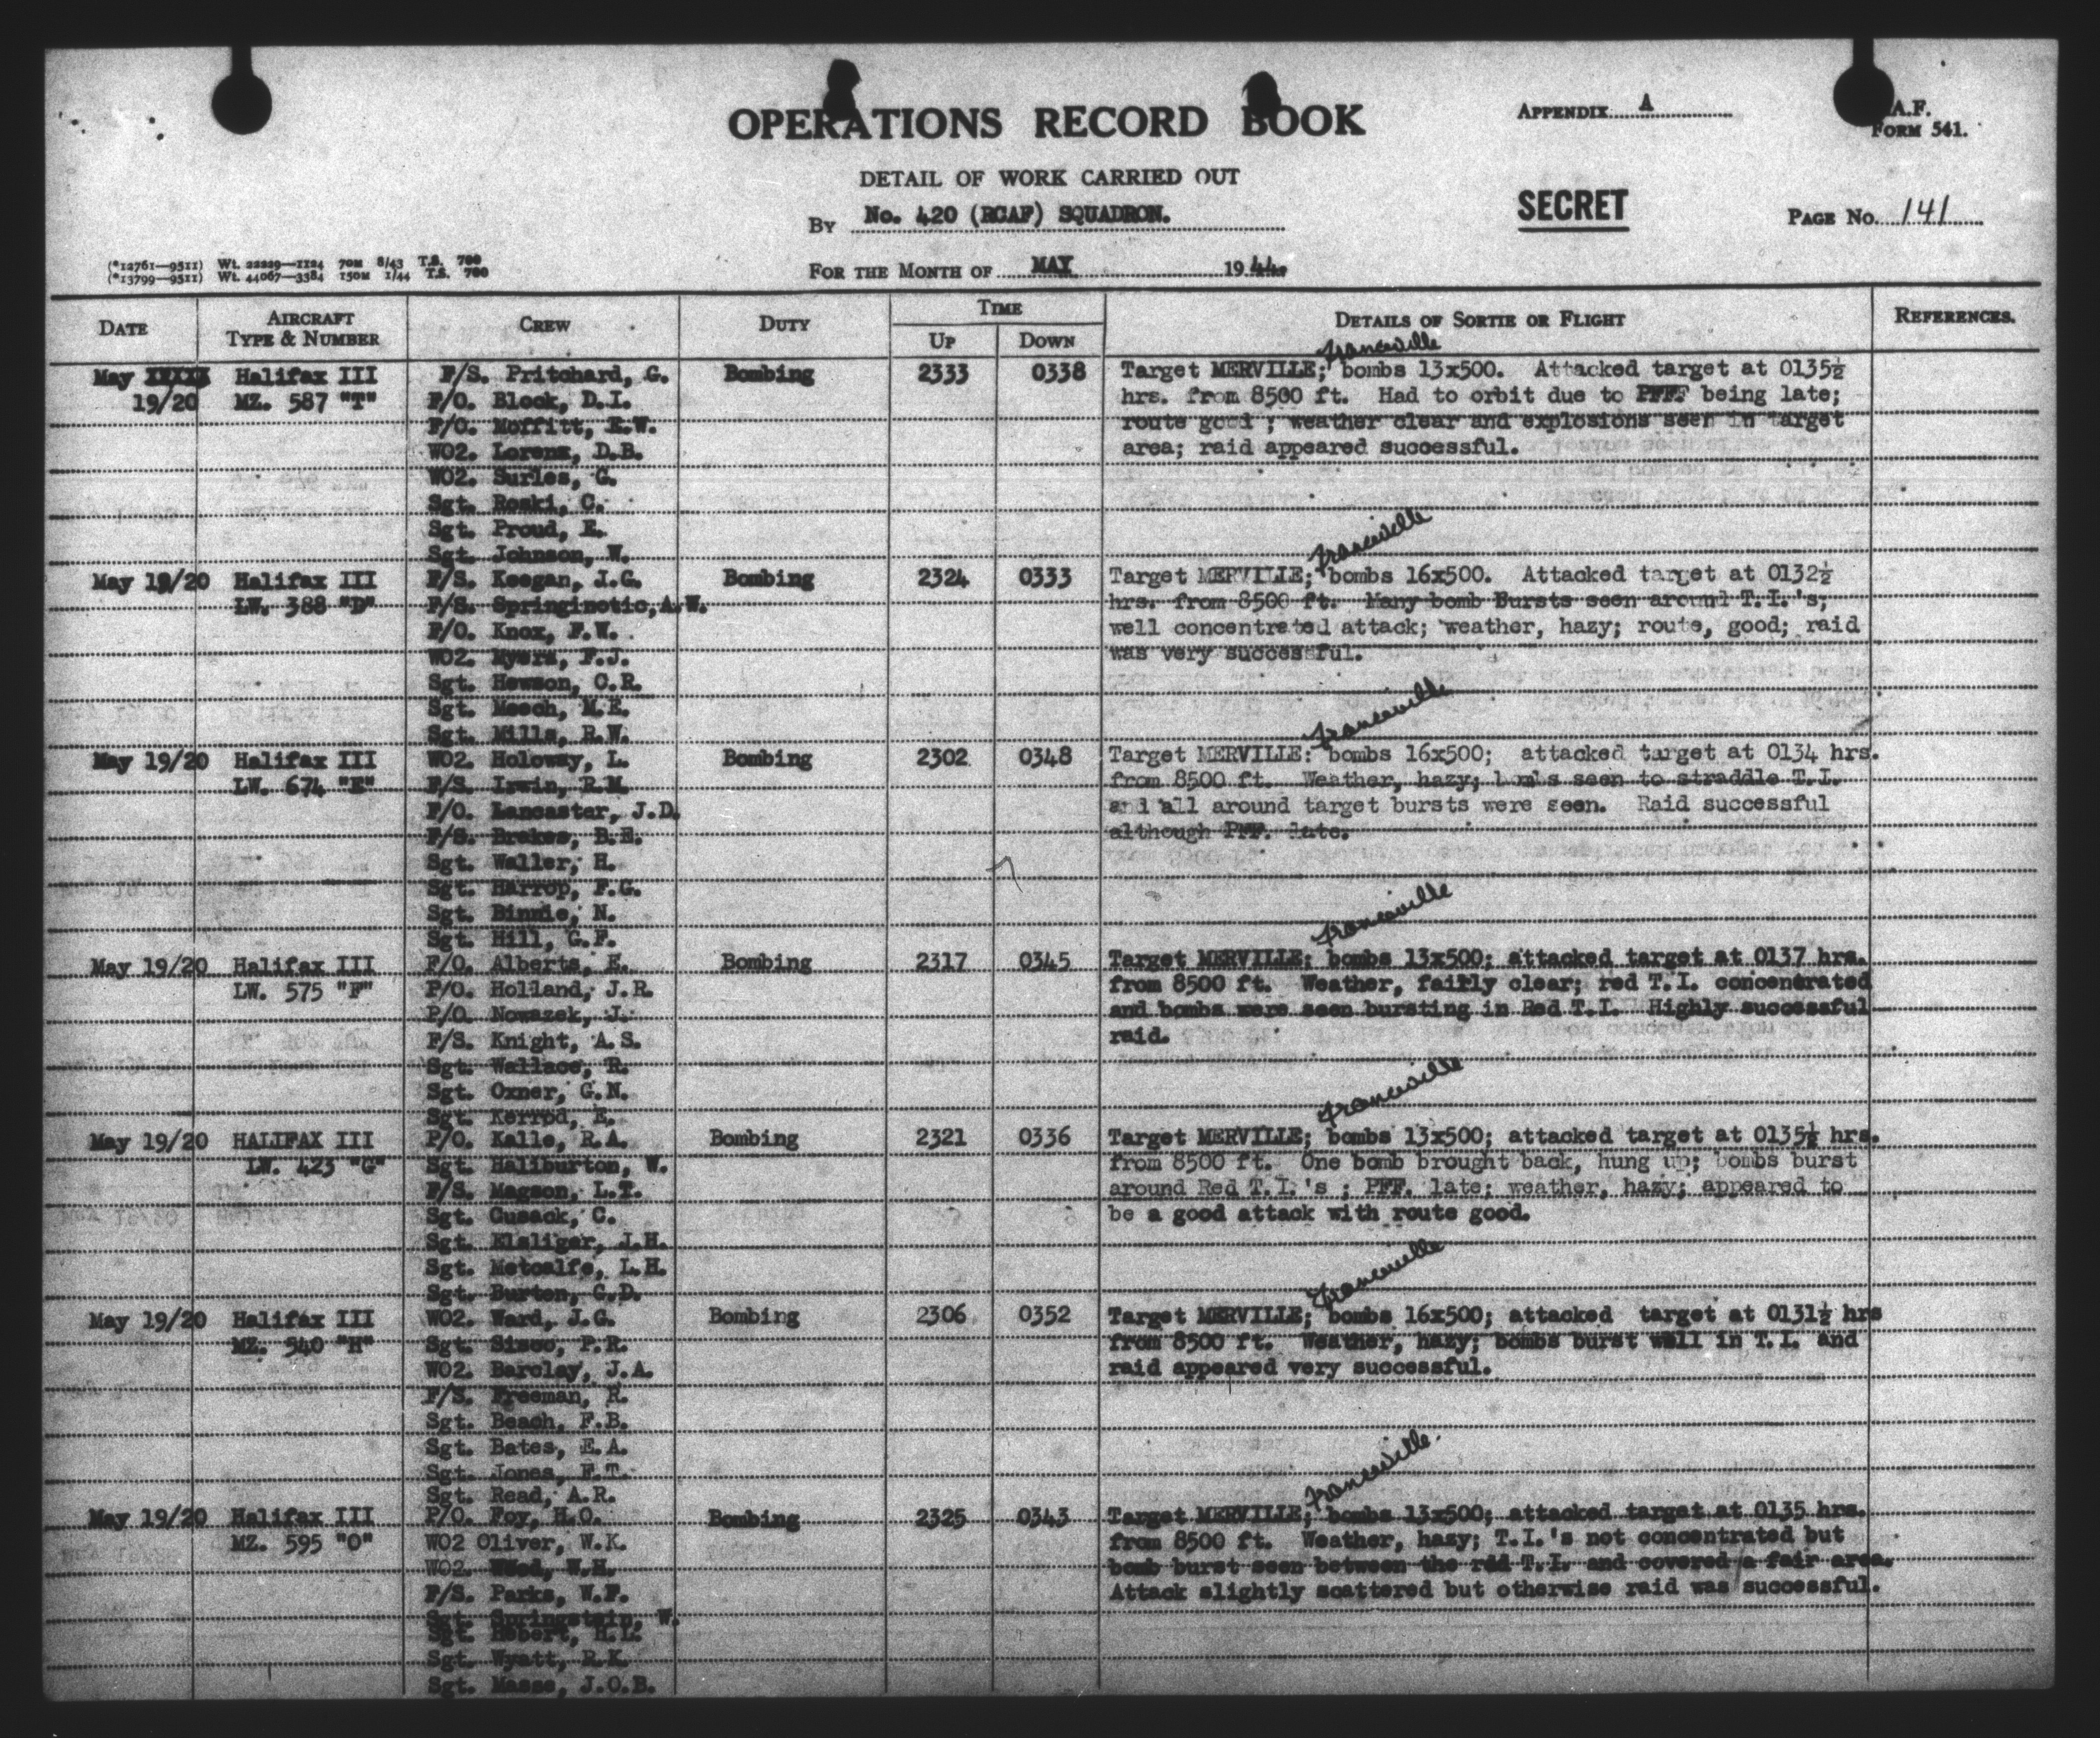 OPERATIONS RECORD BOOK
APPENDIX A
A.F.
FORM 541.
DETAIL OF WORK CARRIED OUT
By No. 420 (RCAF) SQUADRON.
SECRET
PAGE No. 141
FOR THE MONTH OF MAY 1944.
(*12761—9511) Wt. 22229—1124 70M 8/43 T.S. 700
(*13799—9511) Wt. 44067—3384 150M 1/44 T.S. 700
DATE AIRCRAFT TYPE & NUMBER CREW DUTY TIME UP DOWN DETAILS OF SORTIE OR FLIGHT REFERENCES.
Franceville
May 19/20 Halifax III F/S. Pritchard, G. Bombing 2333 0338 Target MERVILLE; bombs 13x500. Attacked target at 0135½
MZ. 587 "T" F/O. Block, D.I. hrs. from 8500 ft. Had to orbit due to PFF. being late;
F/O. Moffitt, E.W. route good ; weather clear and explosions seen in target
WO2. Lorenz, D.B. area; raid appeared successful.
WO2. Surles, G.
Sgt. Roski, C.
Sgt. Proud, E.
Sgt. Johnson, W.
Franceville
May 19/20 Halifax III F/S. Keegan, J.G. Bombing 2324 0333 Target MERVILLE; bombs 16x500. Attacked target at 0132½
LW. 388 "D" F/S. Springinotic, A.W. hrs. from 8500 ft. Many bomb Bursts seen around T.I.'s;
F/O. Knox, F.W. well concentrated attack; weather, hazy; route, good; raid
WO2. Myers, F.J. was very successful.
Sgt. Hewson, C.R.
Sgt. Meech, M.E.
Sgt. Mills, R.W.
Franceville
May 19/20 Halifax III WO2. Holoway, L. Bombing 2302 0348 Target MERVILLE: bombs 16x500; attacked target at 0134 hrs.
LW. 674 "E" F/S. Irwin, R.M. from 8500 ft. Weather, hazy; bombs seen to straddle T.I.
F/O. Lancaster, J.D. and all around target bursts were seen. Raid successful
F/S. Brakes, B.E. although PFF. late.
Sgt. Waller, H.
Sgt. Harrop, F.G.
Sgt. Binnie, N.
Sgt. Hill, G.F.
Franceville
May 19/20 Halifax III F/O. Alberts, E. Bombing 2317 0345 Target MERVILLE; bombs 13x500; attacked target at 0137 hrs.
LW. 575 "F" P/O. Holland, J.R. from 8500 ft. Weather, fairly clear; red T.I. concentrated
P/O. Nowazek, J. and bombs were seen bursting in Red T.I. Highly successful
F/S. Knight, A.S. raid.
Sgt. Wallace, R.
Sgt. Oxner, G.N.
Sgt. Kerrod, E.
Franceville
May 19/20 HALIFAX III P/O. Kalle, R.A. Bombing 2321 0336 Target MERVILLE; bombs 13x500; attacked target at 0135½ hrs.
LW. 423 "G" Sgt. Haliburton, W. from 8500 ft. One bomb brought back, hung up; bombs burst
F/S. Magson, L.T. around Red T.I.'s ; PFF. late; weather, hazy; appeared to
Sgt. Cusack, C. be a good attack with route good.
Sgt. Elsliger, J.H.
Sgt. Metcalfe, L.H.
Sgt. Burton, G.D.
Franceville
May 19/20 Halifax III WO2. Ward, J.G. Bombing 2306 0352 Target MERVILLE; bombs 16x500; attacked target at 0131½ hrs
MZ. 540 "H" Sgt. Sisco, P.R. from 8500 ft. Weather, hazy; bombs burst well in T.I. and
WO2. Barclay, J.A. raid appeared very successful.
F/S. Freeman, R.
Sgt. Beach, F.B.
Sgt. Bates, E.A.
Sgt. Jones, F.T.
Sgt. Read, A.R.
Franceville.
May 19/20 Halifax III P/O. Foy, H.O. Bombing 2325 0343 Target MERVILLE; bombs 13x500; attacked target at 0135 hrs.
MZ. 595 "O" WO2 Oliver, W.K. from 8500 ft. Weather, hazy; T.I.'s not concentrated but
WO2. Wood, W.H. bomb burst seen between the red T.I. and covered a fair area.
F/S. Parks, W.F. Attack slightly scattered but otherwise raid was successful.
Sgt. Springstein, W.
Sgt. Hebert, H.L.
Sgt. Wyatt, R.K.
Sgt. Masse, J.O.B.